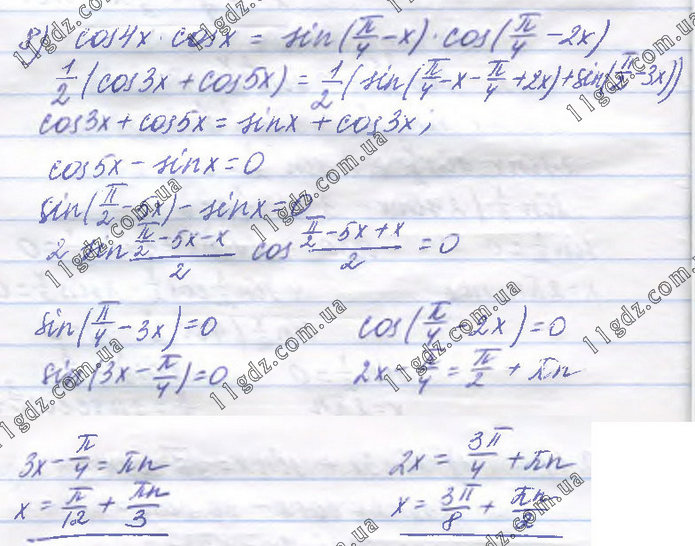 8) cos4x · cosx = sin(π/4 - x) · cos(π/4 - 2x)
1/2 (cos3x + cos5x) = 1/2 (sin(π/4 - x - π/4 + 2x) + sin(π/2 - 3x))
cos3x + cos5x = sinx + cos3x;
cos5x - sinx = 0
sin(π/2 - 5x) - sinx = 0
2 sin (π/2 - 5x - x)/2 cos (π/2 - 5x + x)/2 = 0
sin(π/4 - 3x) = 0
sin(3x - π/4) = 0
3x - π/4 = πn
x = π/12 + πn/3
cos(π/4 - 2x) = 0
2x - π/4 = π/2 + πn
2x = 3π/4 + πn
x = 3π/8 + πn/2
11gdz.com.ua
11gdz.com.ua
11gdz.com.ua
11gdz.com.ua
11gdz.com.ua
11gdz.com.ua
11gdz.com.ua
11gdz.com.ua
11gdz.com.ua
11gdz.com.ua